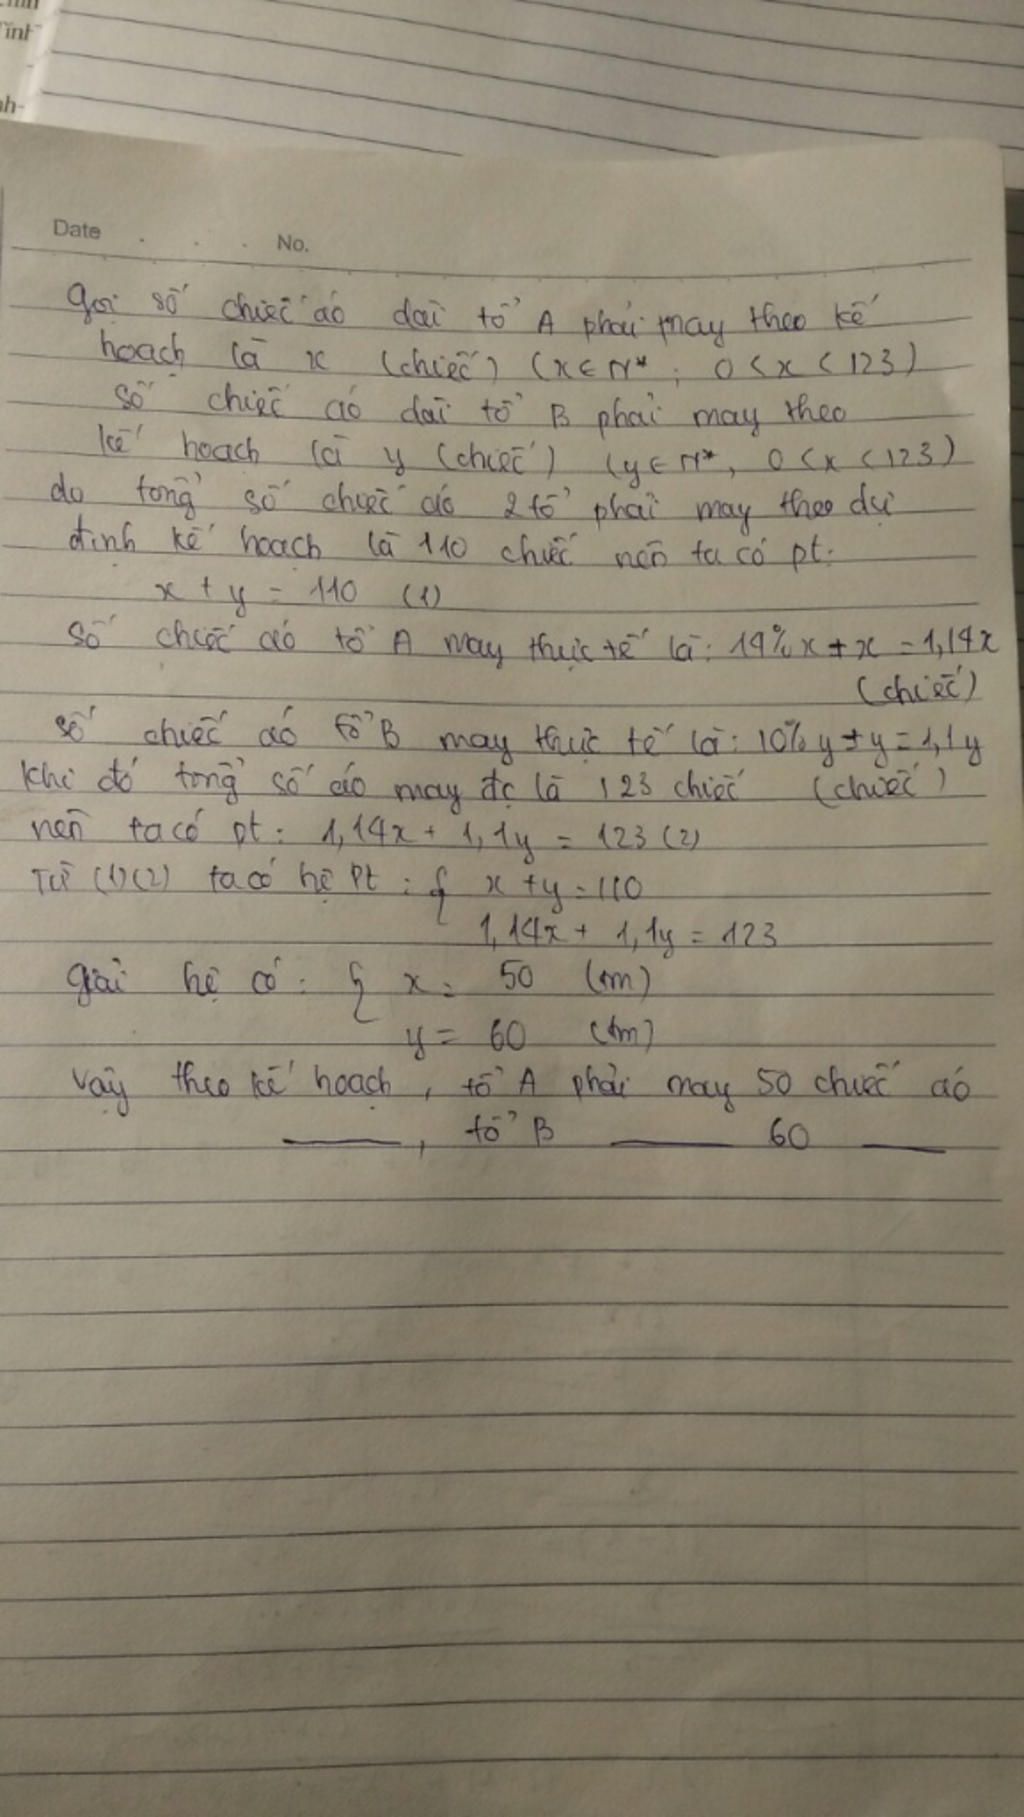 Tính
nh-
Date . . . No.
Gọi số chiếc áo dài tổ A phải may theo kế
hoạch là x (chiếc) (x ∈ N*; 0 < x < 123)
Số chiếc áo dài tổ B phải may theo
kế hoạch là y (chiếc) (y ∈ N*, 0 < x < 123)
do tổng số chiếc áo 2 tổ phải may theo dự
định kế hoạch là 110 chiếc nên ta có pt:
x + y = 110 (1)
Số chiếc áo tổ A may thực tế là: 14% x + x = 1,14x
(chiếc)
Số chiếc áo tổ B may thực tế là: 10% y + y = 1,1y
Khi đó tổng số áo may đc là 123 chiếc (chiếc)
nên ta có pt: 1,14x + 1,1y = 123 (2)
Từ (1)(2) ta có hệ Pt: { x + y = 110
1,14x + 1,1y = 123
Giải hệ có: { x = 50 (tm)
y = 60 (tm)
Vậy theo kế hoạch, tổ A phải may 50 chiếc áo
, tổ B 60